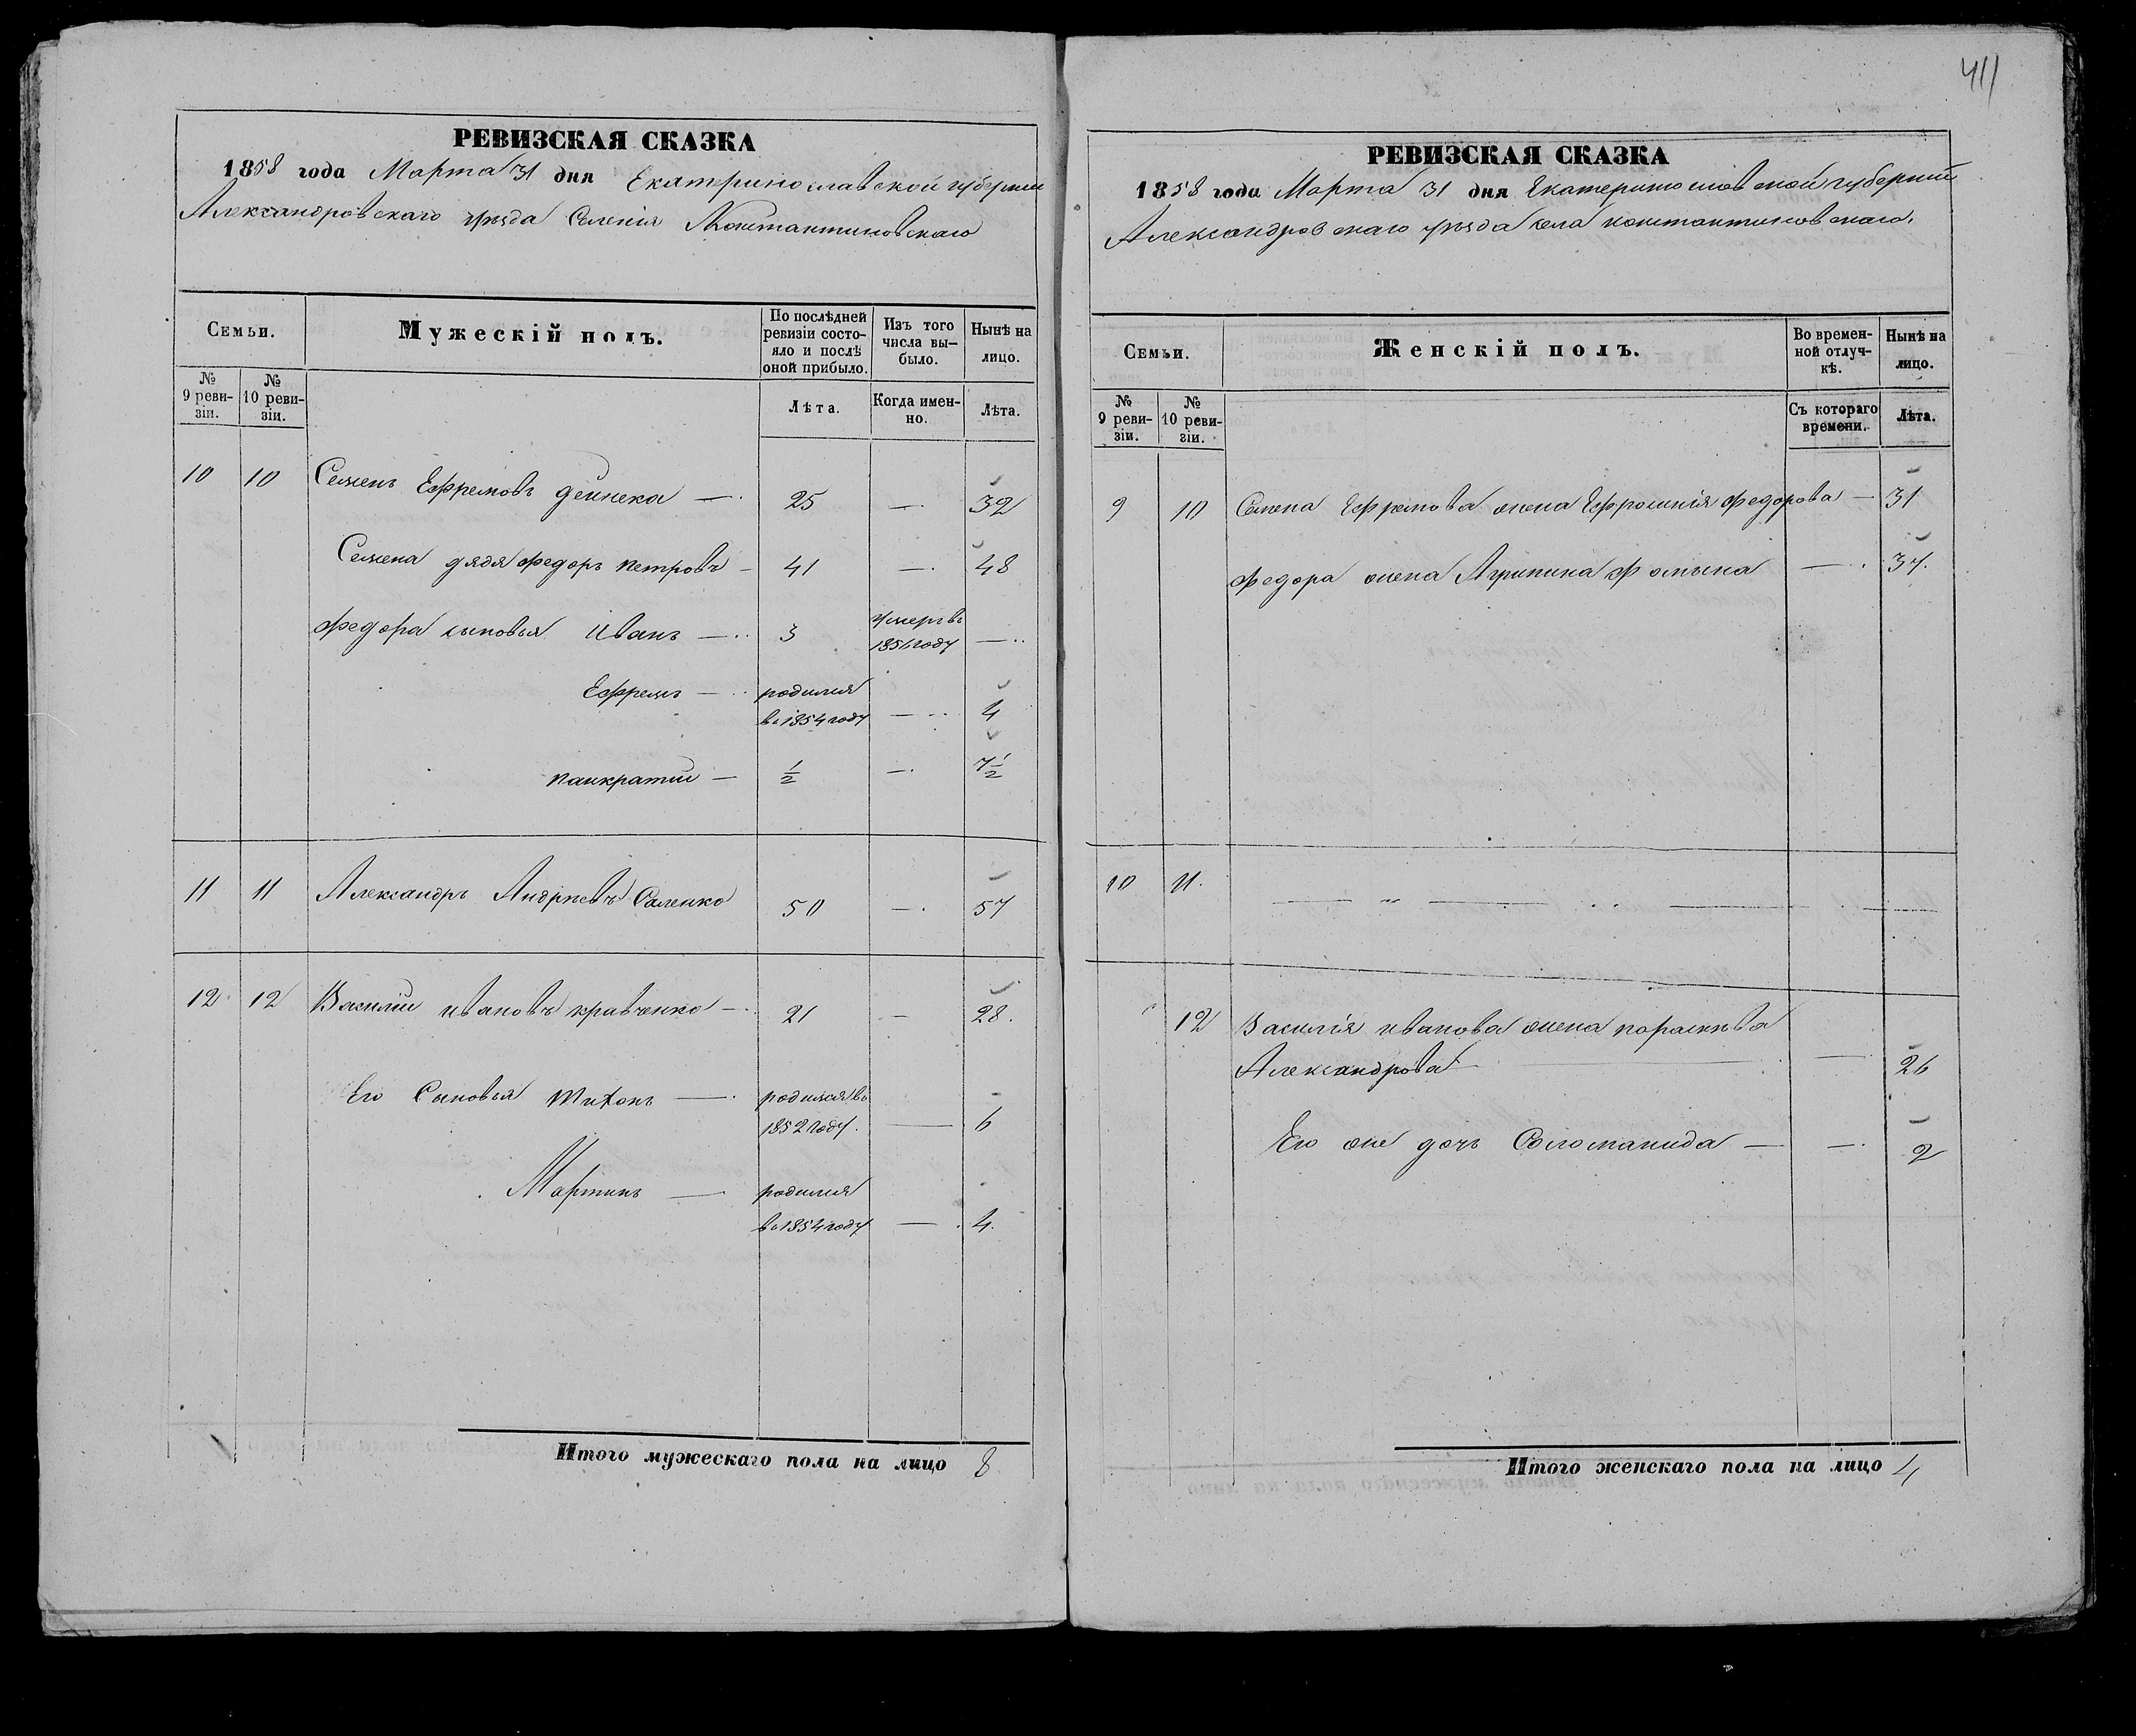 411
РЕВИЗСКАЯ СКАЗКА
1858 года Марта 31 дня Екатеринославской губернии
Александровскаго уѣзда Селенія Константиновскаго
Семьи.
Мужескій полъ.
По послѣдней ревизіи состояло и послѣ оной прибыло.
Изъ того числа вы-было.
Нынѣ на лицо.
№ 9 реви-зіи.
№ 10 реви-зіи.
Лѣта.
Когда имен-но.
Лѣта.
10 10 Семенъ Ефремовъ Дейнека — 25 — 32
Семена дядя Федоръ Петровъ — 41 — 48
Федора сыновья Иванъ — 3 умеръ въ 1856 году —
Ефремъ — родился въ 1854 году — 4
Панкратий — ½ — 7½
11 11 Александръ Андрѣевъ Саленко 50 — 57
12 12 Василий Ивановъ Кравченко — 21 — 28.
Его Сыновья Тихонъ — родился въ 1852 году. — 6
Мартинъ — родился въ 1854 году — 4.
Итого мужескаго пола на лицо 8
РЕВИЗСКАЯ СКАЗКА
1858 года Марта 31 дня Екатеринославской губернии
Александровскаго уѣзда села Константиновскаго.
Семьи.
Женскій полъ.
Во времен-ной отлуч-кѣ.
Нынѣ на лицо.
№ 9 реви-зіи.
№ 10 реви-зіи.
Съ котораго времени.
Лѣта.
9 10 Семена Ефремова жена Ефросинія Федорова — 31
Федора жена Агрипина Фомына — 37.
10 11.
12 Василія Иванова жена Параскева
Александрова — 26
Его же дочь Соломанида — — 2
Итого женскаго пола на лицо 4